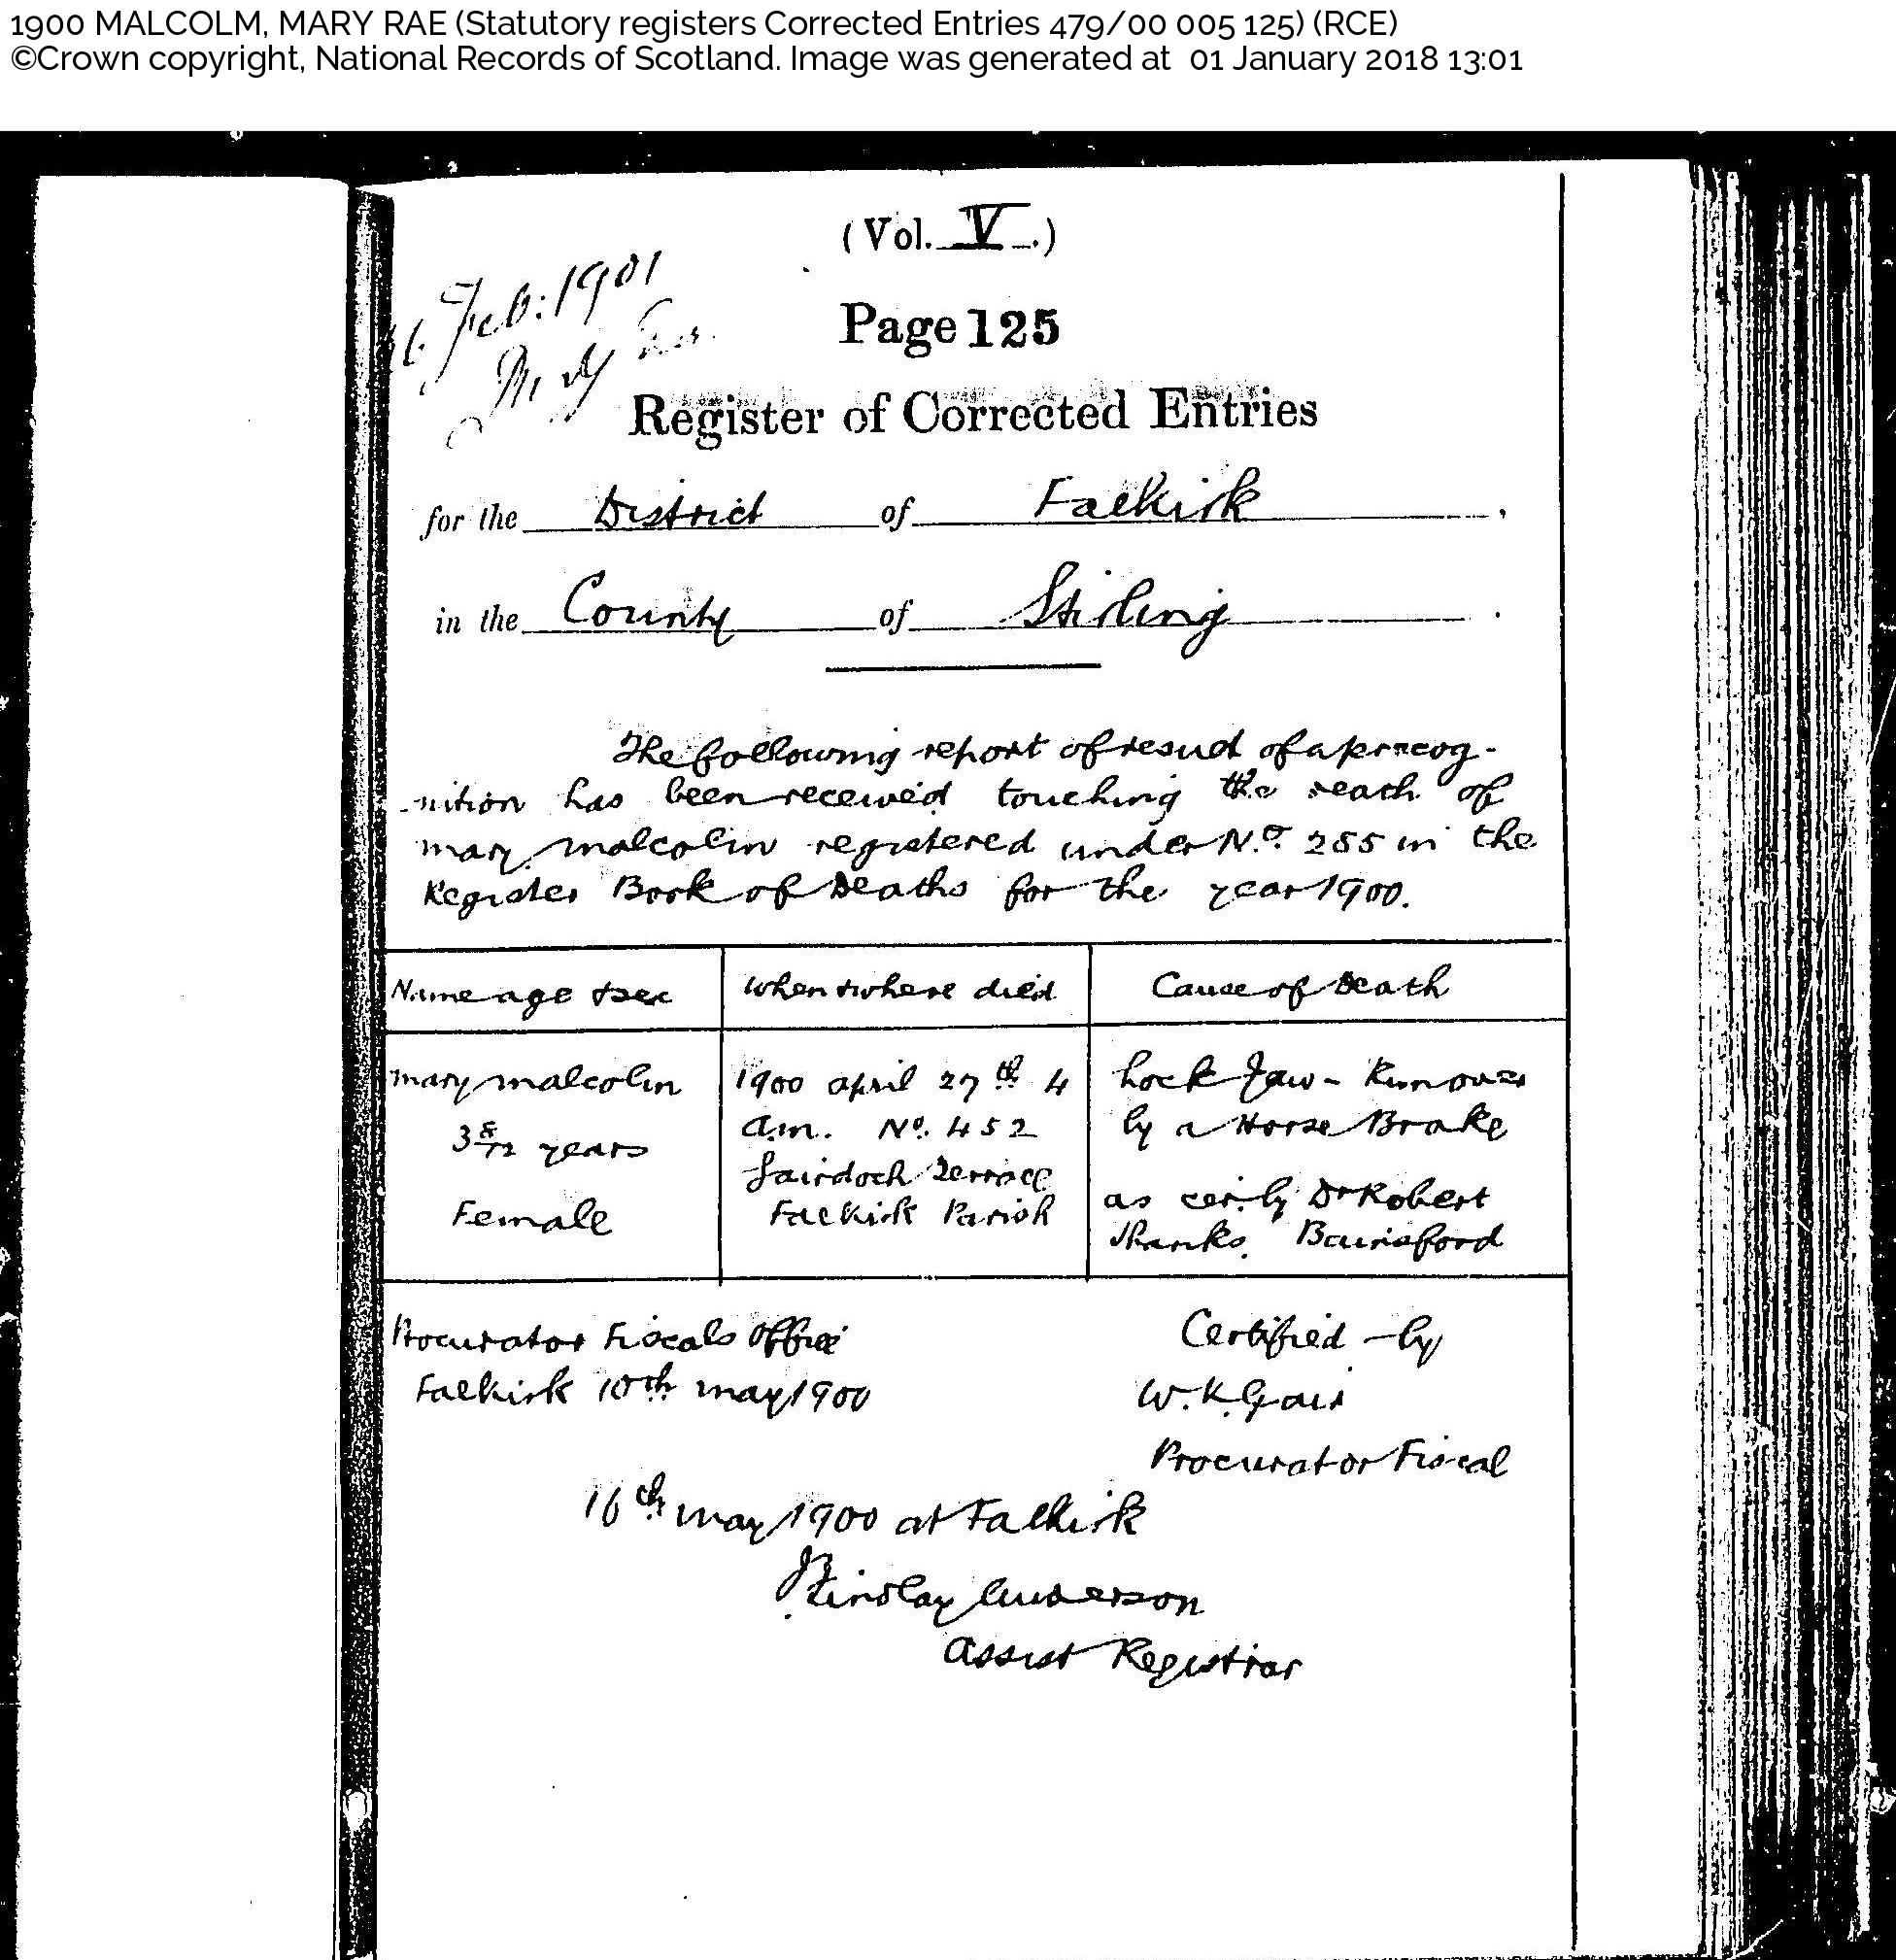 1900 MALCOLM, MARY RAE (Statutory registers Corrected Entries 479/00 005 125) (RCE)
©Crown copyright, National Records of Scotland. Image was generated at 01 January 2018 13:01
(Vol. V.)
Feb: 1901
Page 125
Register of Corrected Entries
for the District of Falkirk.
in the County of Stirling.
The following report of result of a precog-
-nition has been received touching the death of
Mary Malcolm registered under No. 255 in the
Register Book of Deaths for the year 1900.
Name age & sex
When & where died
Cause of Death
Mary Malcolm
3 8/12 years
Female
1900 April 27th 4
a.m. No. 452
Lairdoch Terrace
Falkirk Parish
Lock Jaw - Run over
by a Horse Brake
as cer. by Dr Robert
Shanks, Bainsford
Procurator Fiscals Office
Falkirk 10th May 1900
Certified by
W. K. Gair
Procurator Fiscal
16th May 1900 at Falkirk
Findlay Anderson
Assist Registrar